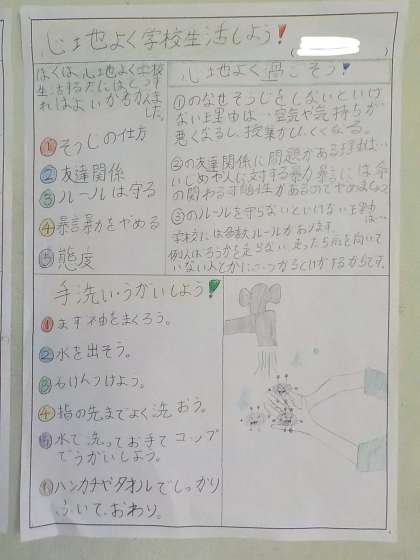 心地よく学校生活しよう!
ぼくは、心地よく学校
生活するためにはどうす
ればよいかをかきま
した。
①そうじの仕方
②友達関係
③ルールは守る
④暴言暴力をやめる
⑤態度
心地よく過ごそう!
①のなぜそうじをしないといけ
ない理由は…空気や気持ちが
悪くなるし、授業がしにくくなる。
②の友達関係に問題がある理由は…
いじめや人に対する暴力暴言には命
の関わる可能性があるのでやめましょう
③のルールを守らないといけない理由
は…
学校には多数ルールがあります。
例えばろうかを走らない 走ったら前を向いて
いない人とかにぶつかるとけがするからです。
手洗い・うがいしよう!
①まず袖をまくろう。
②水を出そう。
③石けんつけよう。
④指の先までよく洗おう。
⑤水で洗ってお手てコップ
でうがいしよう。
⑥ハンカチやタオルでしっかり
ふいて、おわり。